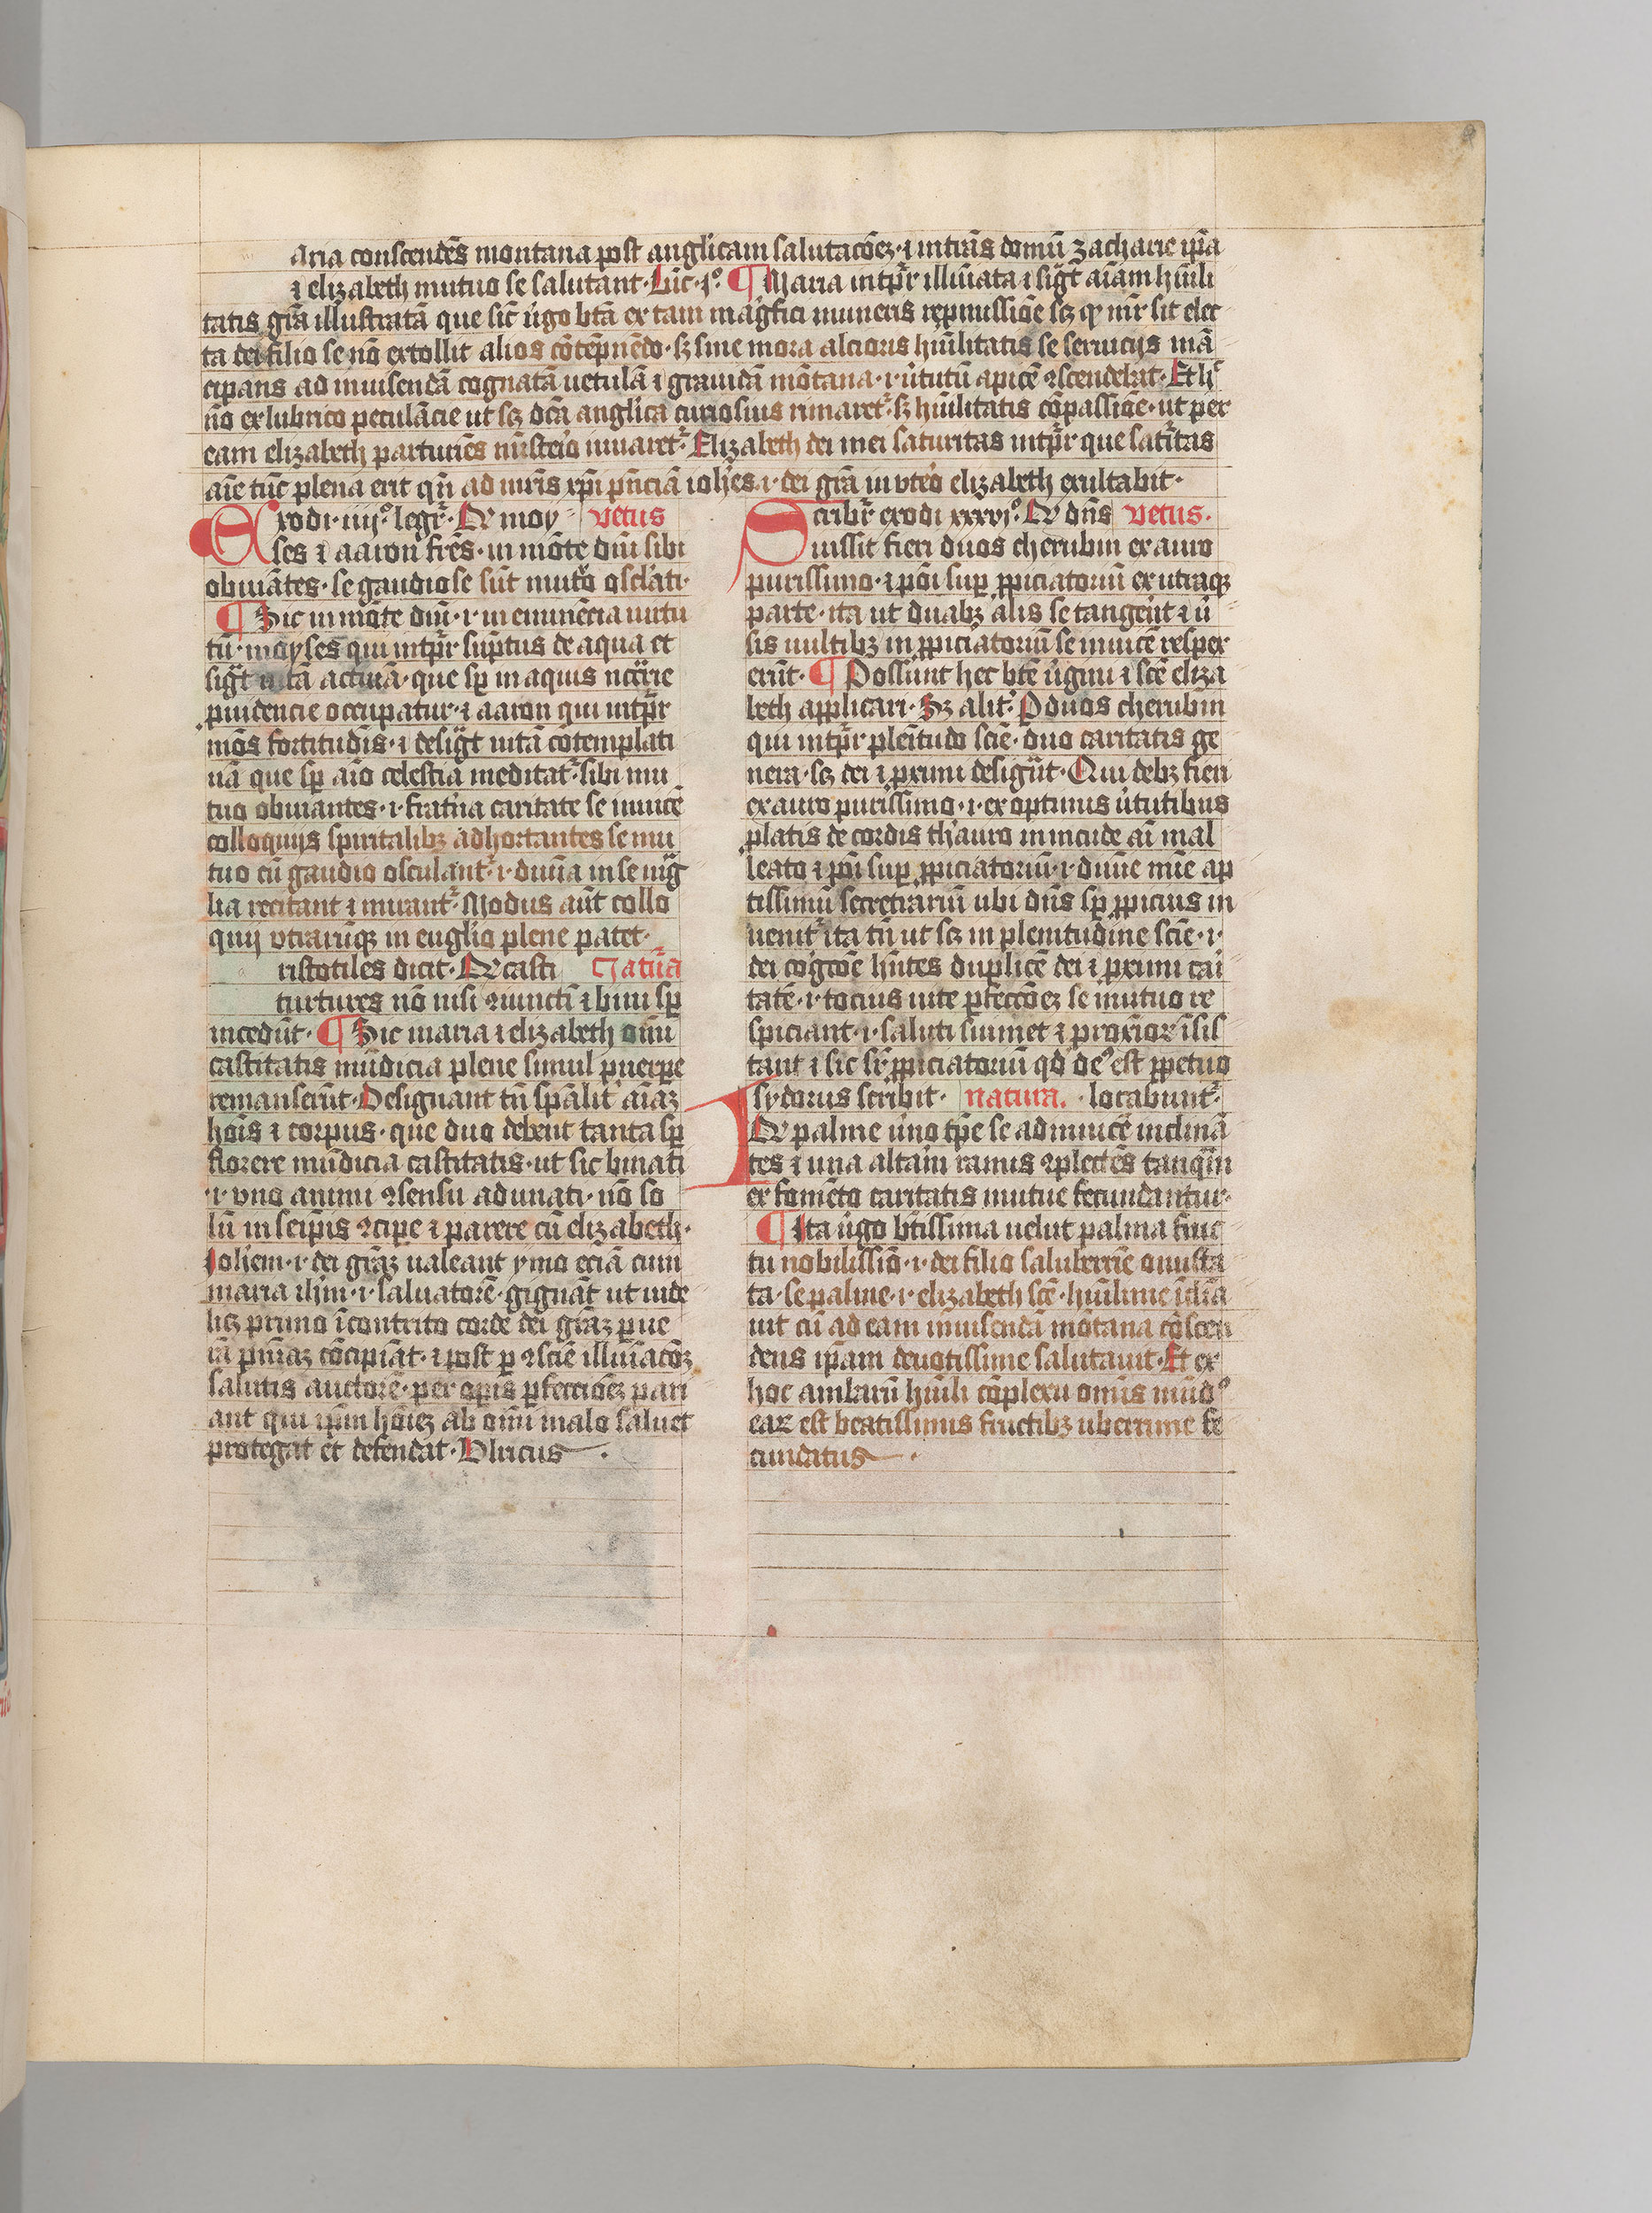 aria conscendēs montana post anglicam salutacōeꝫ · ⁊ intrās domū zacharie ip̄a
⁊ elizabeth mutuo se salutant · Luc̄ · jº · ¶ Maria intp̄r illūiata ⁊ sigt̄ aīam hūili
tatis gr̄a illustratā que sic̄ v̓go bt̄a ex tam magfici muneris rep̱missiōe scꝫ qꝫ mr̄ sit elec
ta dei filio se nō extollit alios cōtēpnēdo · sꝫ sine mora alcioris hūilitatis se seruicijs mā
cipans ad inuisendā cognatā uetulā ⁊ grauidā mōtana · i · v̓tutū apicē ꝯscendebat · Et hº
nō ex lubrico petulācie ut scꝫ dc̄a anglica curiosius rimaret᷑ · sꝫ hūilitatis cōpassiōe · ut per
eam elizabeth parturiēs mīsterio iuuaret᷑ · Elizabeth dei mei saturitas intp̄r que sat᷑itas
aīe tūc plena erit qn̄ ad mr̄is xp̄i p̄nciā ioh̄es · i · dei gr̄a in vtero elizabeth exultabit ·
Exodi · iiijº · legr̄ · Qꝫ moy vetus
ses ⁊ aaron fr̄es · in mōte dn̄i sibi
obuiātes · se gaudiose sūt mutuo osclati ·
¶ Sic in mōte dn̄i · i · in eminēcia uirtu
tū · moyses qui intp̄r sūptus de aqua et
sigt̄ uitā actiuā · que sp̄ in aquis nccārie
p̱uidencie occupatur · ⁊ aaron qui intp̄r
mōs fortitudīs · ⁊ desigt̄ uitā cōtemplati
uā que sp̄ aīo celestia meditat᷑ · sibi mu
tuo obuiantes · i · frat̓na caritate se inuicē
colloquijs spiritalibꝫ adhortantes se mu
tuo cū gaudio osculant᷑ · i · diuīa in se mg̓
lia recitant ⁊ mirant᷑ · Modus aūt collo
quij vtrarūqꝫ in euglio plene patet ·
ristotiles dicit · Qꝫ casti Natūa
turtures nō nisi ꝯiuncti ⁊ bini sp̄
incedūt · ¶ Sic maria ⁊ elizabeth om̄i
castitatis mūdicia plene simul p̱uerp̱e
remanserūt · Designant tn̄ sp̄alit̓ aīaꝫ
hoīs ⁊ corpus · que duo debent tanta sp̄
florere mūdicia castitatis · ut sic binati
· i · vno animi ꝯsensu adunati · nō so
lū in seip̄is ꝯcipe ⁊ parere cū elizabeth ·
Ioh̄em · i · dei gr̄aꝫ ualeant ymo eciā cum
maria ih̄m · i · saluatorē · gignāt ut uide
licꝫ primo ī contrito corde dei gr̄aꝫ p̱ue
iā p̱mīaꝫ cōcipiāt · ⁊ post p̱ ꝯsciē illūiacōeꝫ
salutis auctorē · per op̱is p̱fecciōeꝫ pari
ant qui ip̄m hōieꝫ ab om̄i malo saluet
protegat et defendat · Vlricus ·
Scribr̄ exodi xxxvjº · Qꝫ dn̄s vetus ·
iussit fieri duos cherubin ex auro
purissimo · ⁊ pōi sup̱ p̱piciatoriū ex utraqꝫ
parte · ita ut duabꝫ alis se tangerūt ⁊ v̓
sis uultibꝫ in p̱piciatoriū se inuicē respex
erūt · ¶ Possunt hec bt̄e v̓gini ⁊ scē eliza
beth applicari · Sꝫ alit̓ · P duos cherubin
qui intp̄r plēitudo sciē · duo caritatis ge
nera · scꝫ dei ⁊ p̱ximi desigūt · Qui debꝫ fieri
ex auro purissimo · i · ex optimis v̓tutibus
p̱latis de cordis th̓auro in incude aī mal
leato ⁊ pōi sup̱ p̱piciatoriū · i · diuīe mīe ap
tissimū secretariū ubi dn̄s sp̄ p̱picius in
uenit᷑ ita tn̄ ut scꝫ in plenitudine sciē · i ·
dei cogcōe hn̄tes duplicē dei ⁊ p̱ximi cari
tatē · i · tocius uite p̱feccōeꝫ se mutuo re
spiciant · i · saluti suimet ⁊ proxīor̄ īsis
tant ⁊ sic sr̄ p̱piciatoriū qd̓ deº est p̱petuo
Isydorus scribit · natura · · locabunt᷑ ·
Qꝫ palme v̓no tp̄e se adinuicē inclinā
tes ⁊ una altam ramis ꝯplectēs tanqm̄
ex fomēto caritatis mutue fecundantur ·
¶ Ita v̓go bt̄issima uelut palma fruc
tu nobilissīo · i · dei filio saluberrīe onusta
ta · se palme · i · elizabeth scē · hūilime īclīa
uit cū ad eam inuisendā mōtana cōscen
dens ip̄am deuotissime salutauit · Et ex
hoc ambarū hūili cōplexu om̄is mūdº
eaꝝ est beatissimis fructibꝫ uberrime fe
cundatus ·